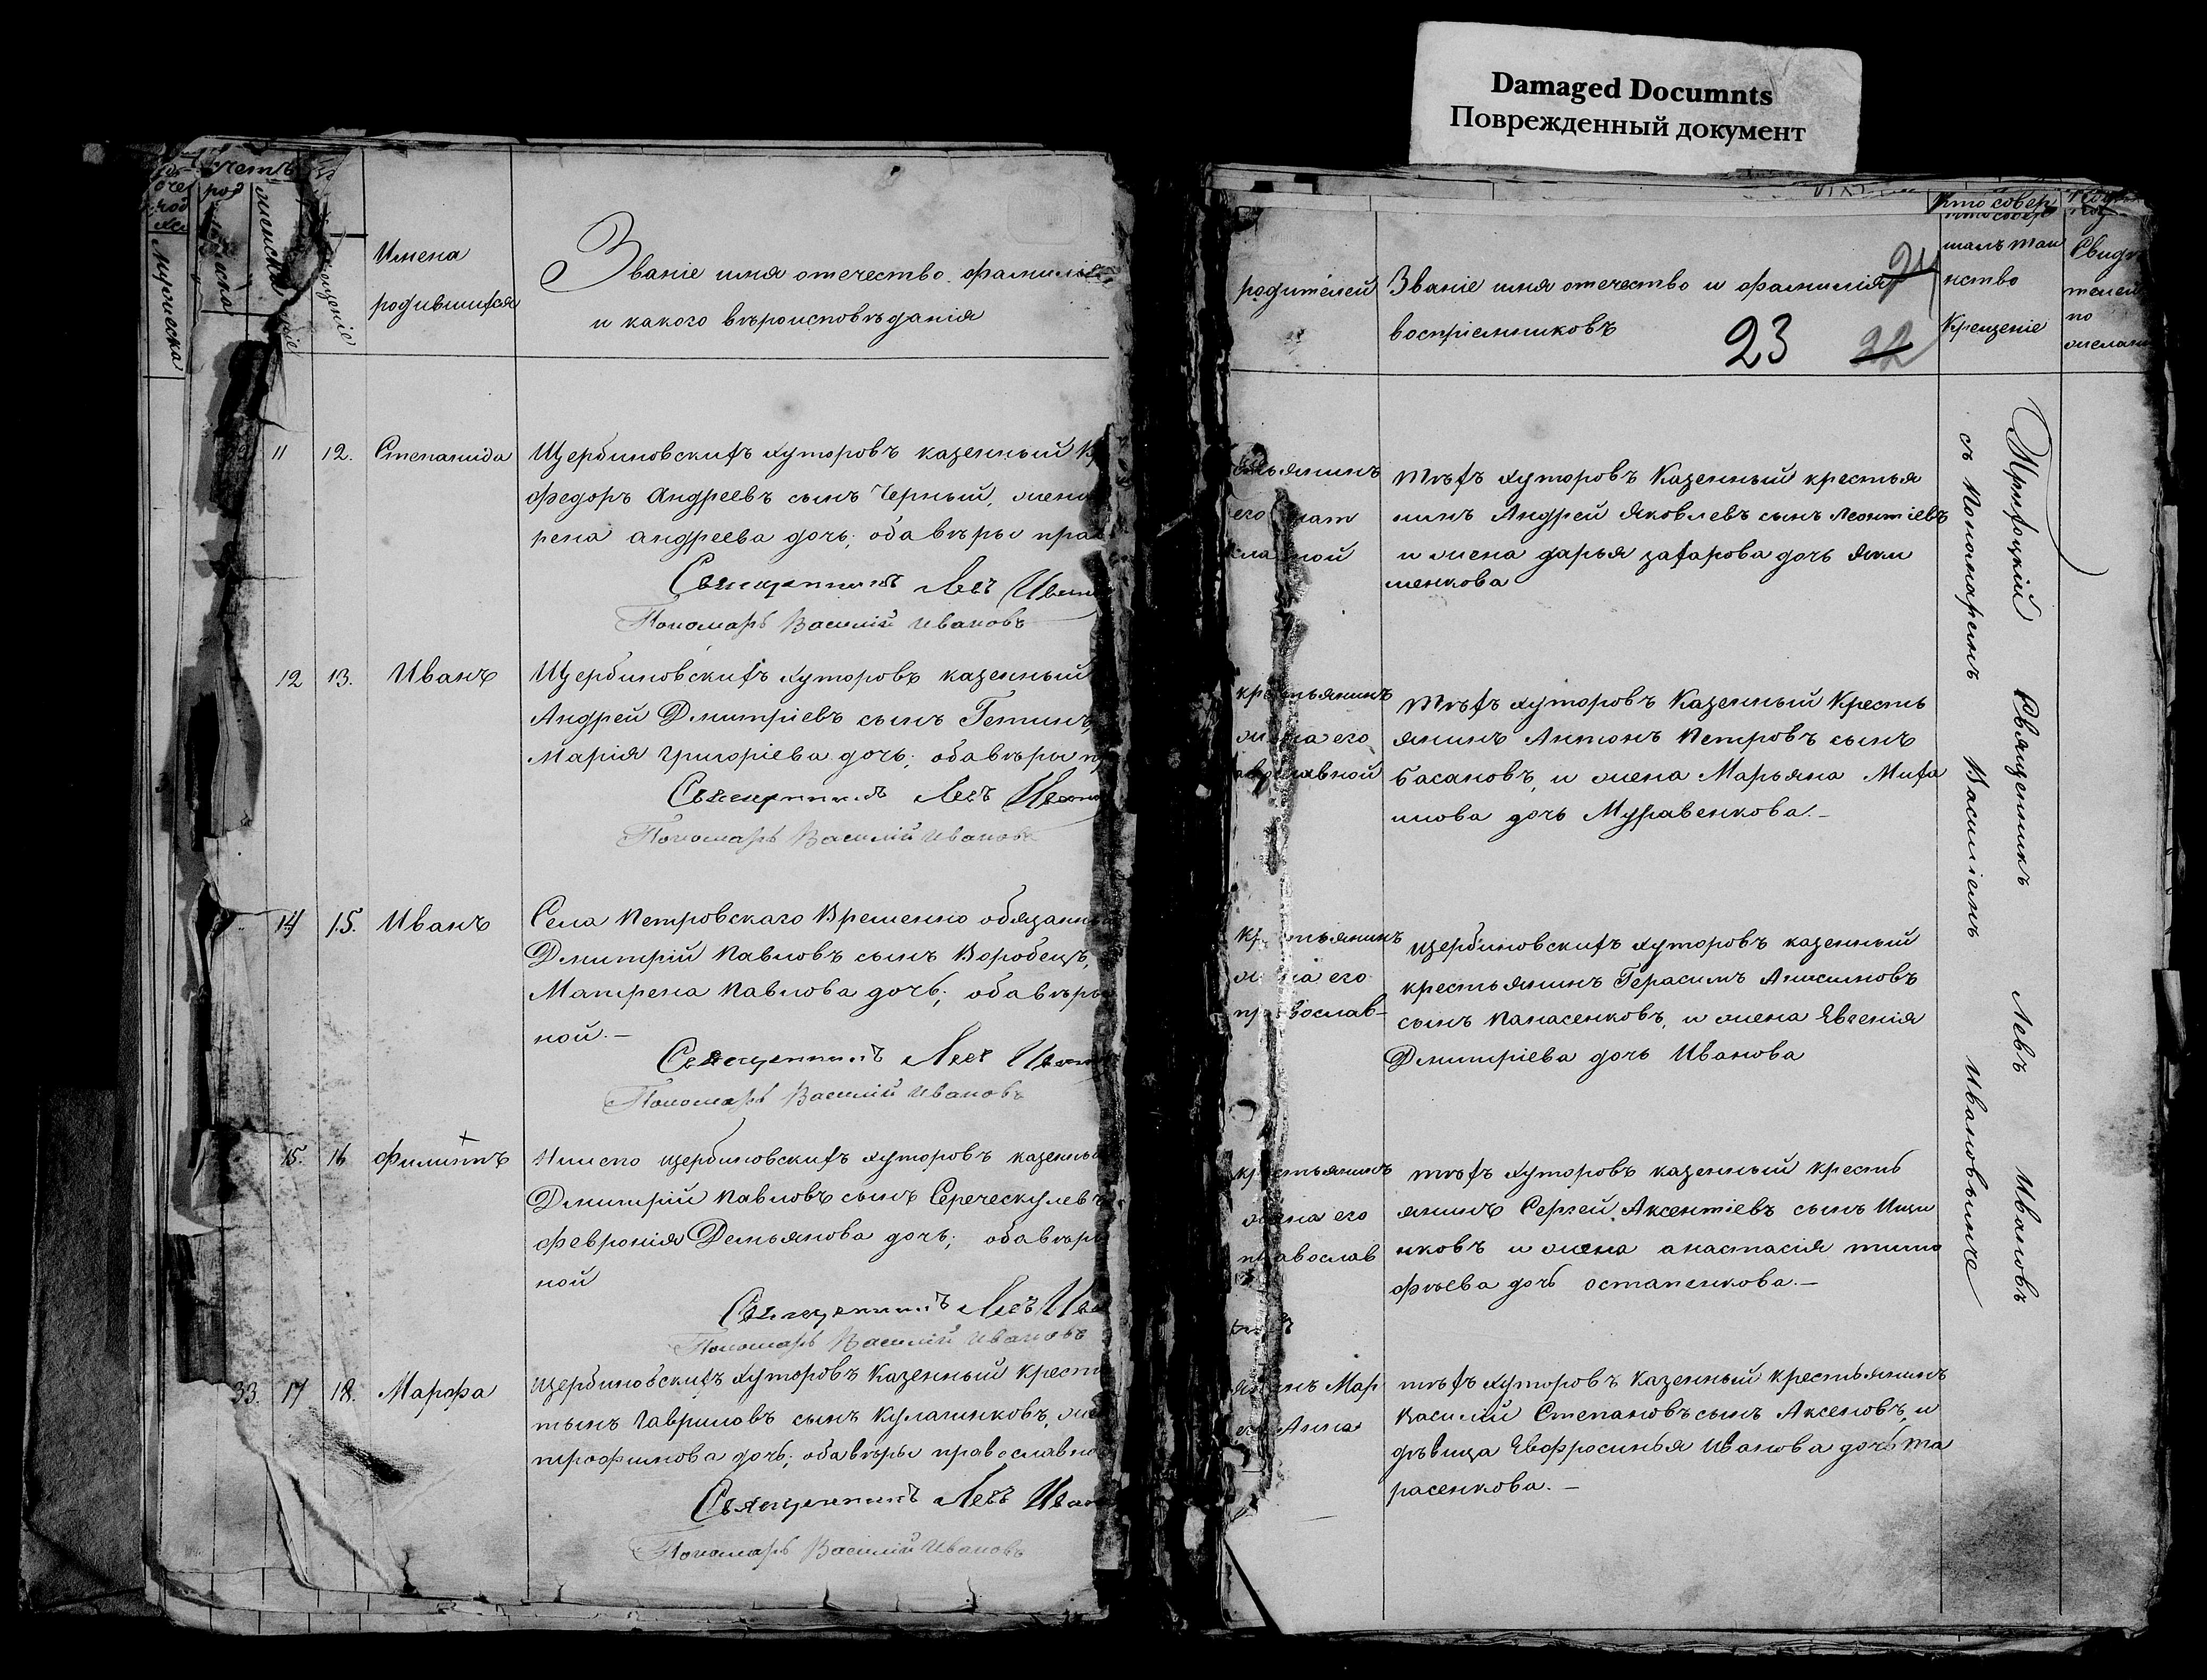 Damaged Documnts
Поврежденный документ
Имена
родившихся
Званіе имя отечество фамилія
и какого вѣроисповѣданія
крещеніе
11 12. Степанида Щербиновскихъ хуторовъ казенный
Федоръ Андреевъ сынъ Черный, жена
рена андреева дочь; оба вѣры прав
Священникъ Левъ Ивановъ
Пономарь Василій Ивановъ
12 13. Иванъ Щербиновскихъ хуторовъ казенный
Андрей Дмитріевъ сынъ Гетинъ,
Марія григоріева дочь; оба вѣры пр
Священникъ Левъ Ивано
Пономарь Василій Ивановъ
14 15. Иванъ Села Петровскаго Временно обязанный
Дмитрій Павловъ сынъ Воробецъ,
Матрена Павлова дочь; оба вѣры
ной. —
Священникъ Левъ Ивано
Пономарь Василій Ивановъ
15. 16 Филиппъ щербиновскихъ хуторовъ казенный
Дмитрій Павловъ сынъ
Февронія Демьянова дочь; оба вѣры
ной
Священникъ Левъ Ива
Пономарь Василій Ивановъ
33. 17 18. Марфа щербиновскихъ хуторовъ Казенный крест
тынъ Гавриловъ сынъ Кулагинковъ, же
трофимова дочь; оба вѣры православно
Священникъ Левъ Иван
Пономарь Василій Ивановъ
родителей
Званіе имя отечество и фамилія
воспріемниковъ
24
23 22
Кто совер
шалъ таи
нство
Крещеніе
Свидѣ
телей
по
желан
тѣхъ хуторовъ Казенный крестья
нинъ Андрей Яковлевъ сынъ Леонтіевъ
и жена дарья захарова дочь Яки
менкова
крестьянинъ
жена его
православной
тѣхъ хуторовъ Казенный Кресть
янинъ Антонъ Петровъ сынъ
Басановъ, и жена Марьяна Миха
илова дочь Муравенкова. —
крестьянинъ
жена его
православ-
щербиновскихъ хуторовъ казенный
крестьянинъ Герасимъ Анисимовъ
сынъ Панасенковъ, и жена Евгенія
Дмитріева дочь Иванова
крестьянинъ
жена его
православ
тѣхъ хуторовъ казенный кресть
янинъ Сергей Аксентіевъ сынъ Ищи
нковъ и жена анастасія тимо
фѣева дочь остапенкова. —
янинъ Мар
его Анна
тѣхъ хуторовъ Казенный крестьянинъ
Василій Степановъ сынъ Аксеновъ, и
дѣвица Евфросинья Иванова дочь Та
расенкова. —
Приходскій Священникъ Левъ Ивановъ
съ Пономаремъ Василіемъ Ивановымъ